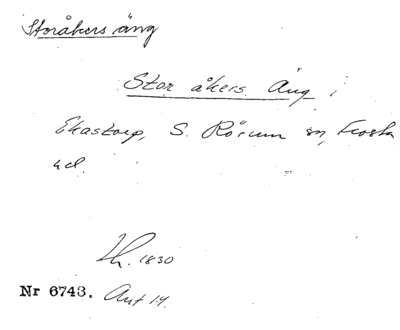 Storåkers äng
Stor åkers Äng i
Ekastorp, S. Rörum sn, Frosta
hd.
1830
Nr 6743. Akt 14.